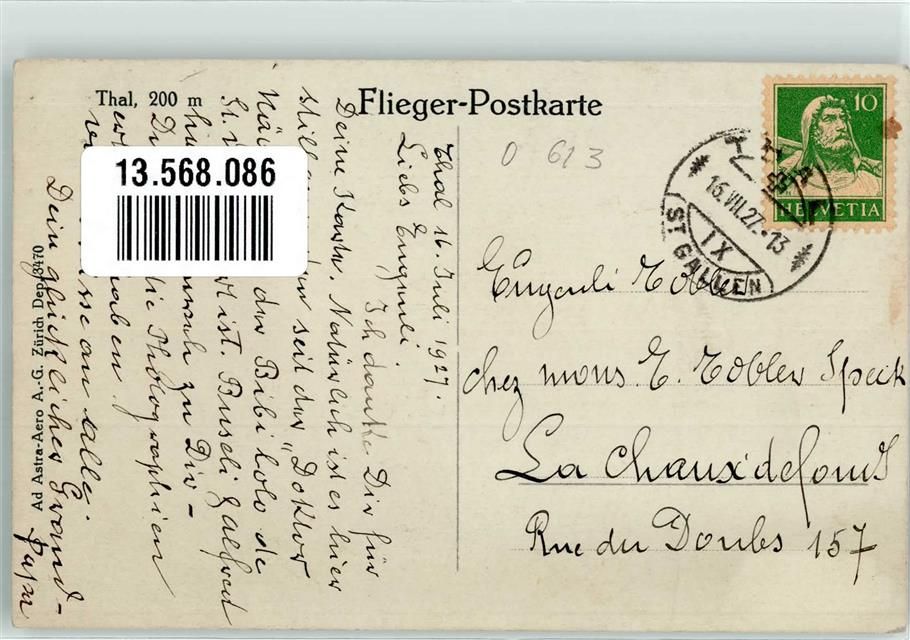 Thal, 200 m
Flieger-Postkarte
13.568.086
10
HELVETIA
16.VII.27.-13
IX
ST GALLEN
0 613
Thal 16. Juli 1927.
Liebs Engueli.
Ich danke Dir für
Deine Karte. Natürlich ist es hier
still seit der "Doktor
der Bibi Lolo de
ist. Buseli Halfred
zu Dir-
die Photographien
haben.
an alle.
Dein glückliches Grand-
papa
Ad Astra-Aero A.-G. Zürich Dep. 3470
Engueli Tobler
chez mons E. Tobler Speck
La Chaux de fonds
Rue du Doubs 157